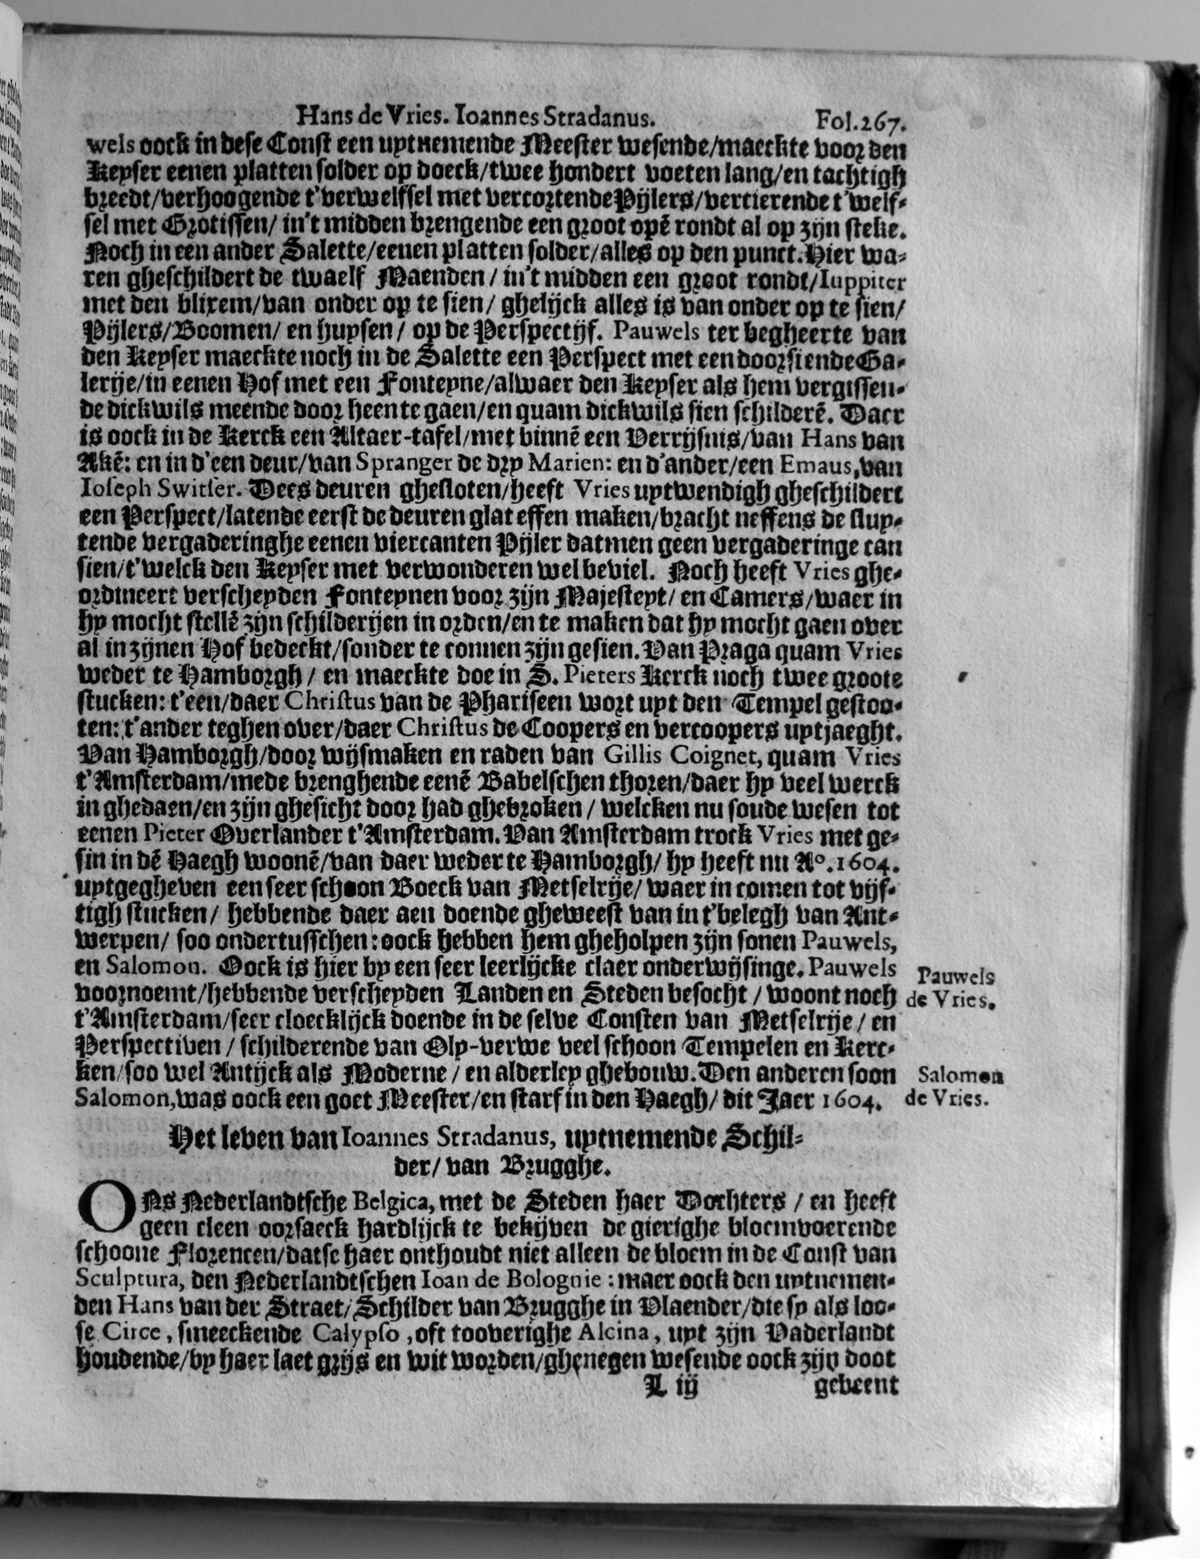 Hans de Vries. Ioannes Stradanus. Fol.267.
wels oock in dese Const een uytnemende Meester wesende/maeckte voor den
Keyser eenen platten solder op doeck/twee hondert voeten lang/en tachtigh
breedt/verhoogende t'verwelfsel met vercortende Pijlers/vercierende t'welf-
sel met Grotissen/ in't midden brengende een groot opē rondt al op zijn steke.
Noch in een ander Salette/eenen platten solder/alles op den punct. Hier wa-
ren gheschildert de twaelf Maenden/ in't midden een groot rondt/Iuppiter
met den blixem/van onder op te sien/ ghelijck alles is van onder op te sien/
Pijlers/Boomen/ en huysen/ op de Perspectijf. Pauwels ter begheerte van
den Keyser maeckte noch in de Salette een Perspect met een doorsiende Ga-
lerije/in eenen Hof met een Fonteyne/alwaer den Keyser als hem vergissen-
de dickwils meende door heen te gaen/en quam dickwils sien schilderē. Daer
is oock in de Kerck een Altaer-tafel/met binnē een Verrijsnis/van Hans van
Akē: en in d'een deur/van Spranger de dry Marien: en d'ander/een Emaus, van
Ioseph Switser. Dees deuren ghesloten/heeft Vries uytwendigh gheschildert
een Perspect/latende eerst de deuren glat effen maken/bracht neffens de sluy-
tende vergaderinghe eenen viercanten Pijler datmen geen vergaderinge can
sien/t'welck den Keyser met verwonderen wel beviel. Noch heeft Vries ghe-
ordineert verscheyden Fonteynen voor zijn Majesteyt/ en Camers/waer in
hy mocht stellē zijn schilderijen in orden/en te maken dat hy mocht gaen over
al in zijnen Hof bedeckt/sonder te connen zijn gesien. Van Praga quam Vries
weder te Hamborgh/ en maeckte doe in S. Pieters Kerck noch twee groote
stucken: t'een/daer Christus van de Phariseen wort uyt den Tempel gestoo-
ten: t'ander teghen over/daer Christus de Coopers en vercoopers uytjaeght.
Van Hamborgh/door wijsmaken en raden van Gillis Coignet, quam Vries
t'Amsterdam/mede brenghende eenē Babelschen thoren/daer hy veel werck
in ghedaen/en zijn ghesicht door had ghebroken/ welcken nu soude wesen tot
eenen Pieter Overlander t'Amsterdam. Van Amsterdam trock Vries met ge-
sin in dē Haegh woonē/van daer weder te Hamborgh/ hy heeft nu A°. 1604.
uytgegheven een seer schoon Boeck van Metselrije/ waer in comen tot vijf-
tigh stucken/ hebbende daer aen doende gheweest van in t'belegh van Ant-
werpen/ soo ondertusschen: oock hebben hem gheholpen zijn sonen Pauwels,
en Salomon. Oock is hier by een seer leerlijcke claer onderwijsinge. Pauwels
voornoemt/hebbende verscheyden Landen en Steden besocht/ woont noch
t'Amsterdam/seer cloecklijck doende in de selve Consten van Metselrije/ en
Perspectiven/ schilderende van Oly-verwe veel schoon Tempelen en Kerc-
ken/soo wel Antijck als Moderne/ en alderley ghebouw. Den anderen soon
Salomon, was oock een goet Meester/en starf in den Haegh/ dit Jaer 1604.
Pauwels
de Vries.
Salomon
de Vries.
Het leven van Ioannes Stradanus, uytnemende Schil-
der/ van Brugghe.
ONs Nederlandtsche Belgica, met de Steden haer Dochters/ en heeft
geen cleen oorsaeck hardlijck te bekijven de gierighe bloemvoerende
schoone Florencen/datse haer onthoudt niet alleen de bloem in de Const van
Sculptura, den Nederlandtschen Ioan de Bolognie: maer oock den uytnemen-
den Hans van der Straet/Schilder van Brugghe in Vlaender/die sy als loo-
se Circe, smeeckende Calypso, oft tooverighe Alcina, uyt zijn Vaderlandt
houdende/by haer laet grijs en wit worden/ghenegen wesende oock zijn doot
L iij gebeent